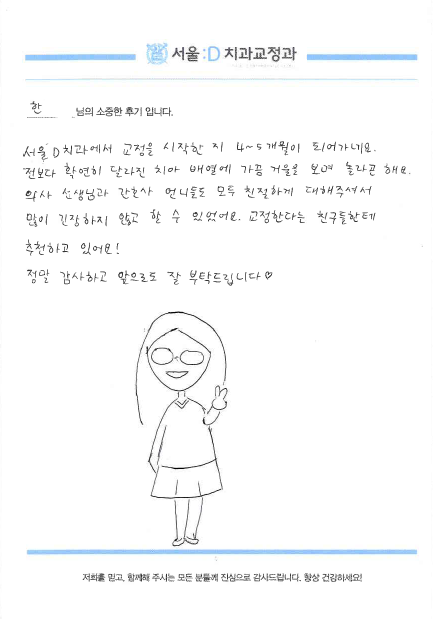 서울:D 치과교정과
한 님의 소중한 후기 입니다.
서울D치과에서 교정을 시작한 지 4~5개월이 되어가네요.
전보다 확연히 달라진 치아 배열에 가끔 거울을 보며 놀라곤 해요.
의사 선생님과 간호사 언니들도 모두 친절하게 대해주셔서
많이 긴장하지 않고 할 수 있었어요. 교정한다는 친구들한테
추천하고 있어요!
정말 감사하고 앞으로도 잘 부탁드립니다♡
저희를 믿고, 함께해 주시는 모든 분들께 진심으로 감사드립니다. 항상 건강하세요!